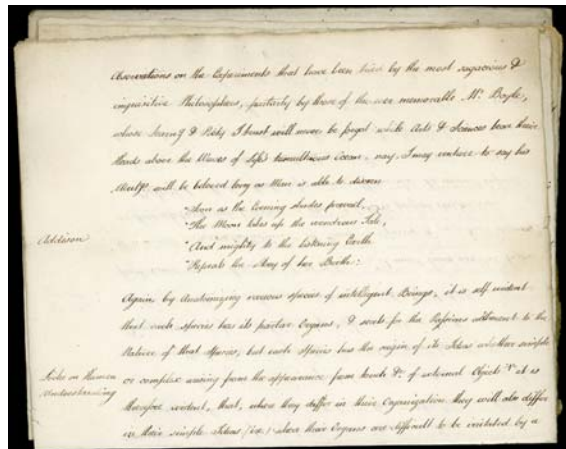 Observations on the Experiments that have been tried by the most sagacious &
inquisitive Philosophers, particularly by those of the ever memorable Mr. Boyle,
whose & Piety I trust will never be forgot while Arts & Sciences bear their
Heads above the Waves of Life's tumultuous Ocean, nay, I may venture to say his
will be beloved long as Man is able to discern
"Soon as the Evening shades prevail,
"The Moon takes up the wondrous Tale,
Addison
"And nightly to the listening Earth
"Repeats the Story of her Birth:
Again by Anatomizing various species of intelligent Beings, it is self evident
that each species has its Organs, & seeks for the Passions to the
Nature of that Species, but each Species has the origin of its Ideas whether simple
Locke on Human
Understanding
or complex arising from the appearance from touch &c. of external Objects it is
therefore evident, that, when they differ in their Organization they will also differ
in their simple Ideas when their Organs are difficult to be irritated by a